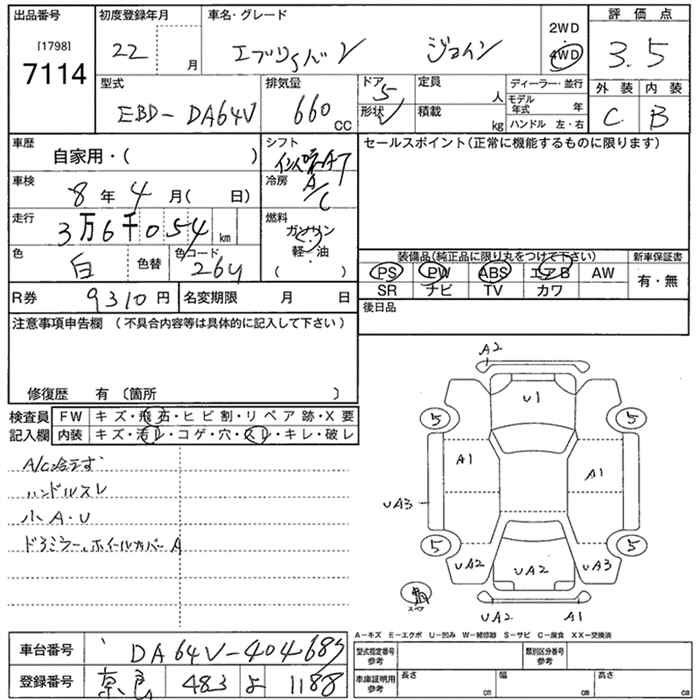 出品番号
[1798]
7114
初度登録年月
22 月
車名・グレード
エブリィバン ジョイン
2WD
4WD
評価点
3.5
外装 内装
C B
型式
EBD-DA64V
排気量
660 CC
ドア 5
形状 V
定員 人
積載 kg
ディーラー・並行
モデル年式 年
ハンドル 左・右
車歴
自家用・( )
車検
8年 4月( 日)
走行
3万6千054 km
色
白
色替
色コード
26U
シフト
冷房
A/C
燃料
ガソリン
軽・油
( )
セールスポイント(正常に機能するものに限ります)
装備品(純正品に限り丸をつけて下さい)
PS PW ABS エアB AW
SR ナビ TV カワ
新車保証書
有・無
R券 9310円
名変期限 月 日
後日品
注意事項申告欄 (不具合内容等は具体的に記入して下さい)
修復歴 有 〔箇所 〕
検査員記入欄
FW キズ・飛石・ヒビ割・リペア跡・X要
内装 キズ・汚レ・コゲ・穴・スレ・キレ・破レ
A/C冷えず
ハンドルスレ
小A・U
ドアミラー、ホイールカバーA
A2
U1
5 5
A1 A1
UA3
5 5
UA2 UA2 UA3
スペア
UA2 A1
A-キズ E-エクボ U-凹み W-補修跡 S-サビ C-腐食 XX-交換済
車台番号 DA64V-404685
登録番号 奈良 483 よ 1188
型式指定番号 参考
類別区分番号 参考
車庫証明用 参考
長さ cm
幅 cm
高さ cm